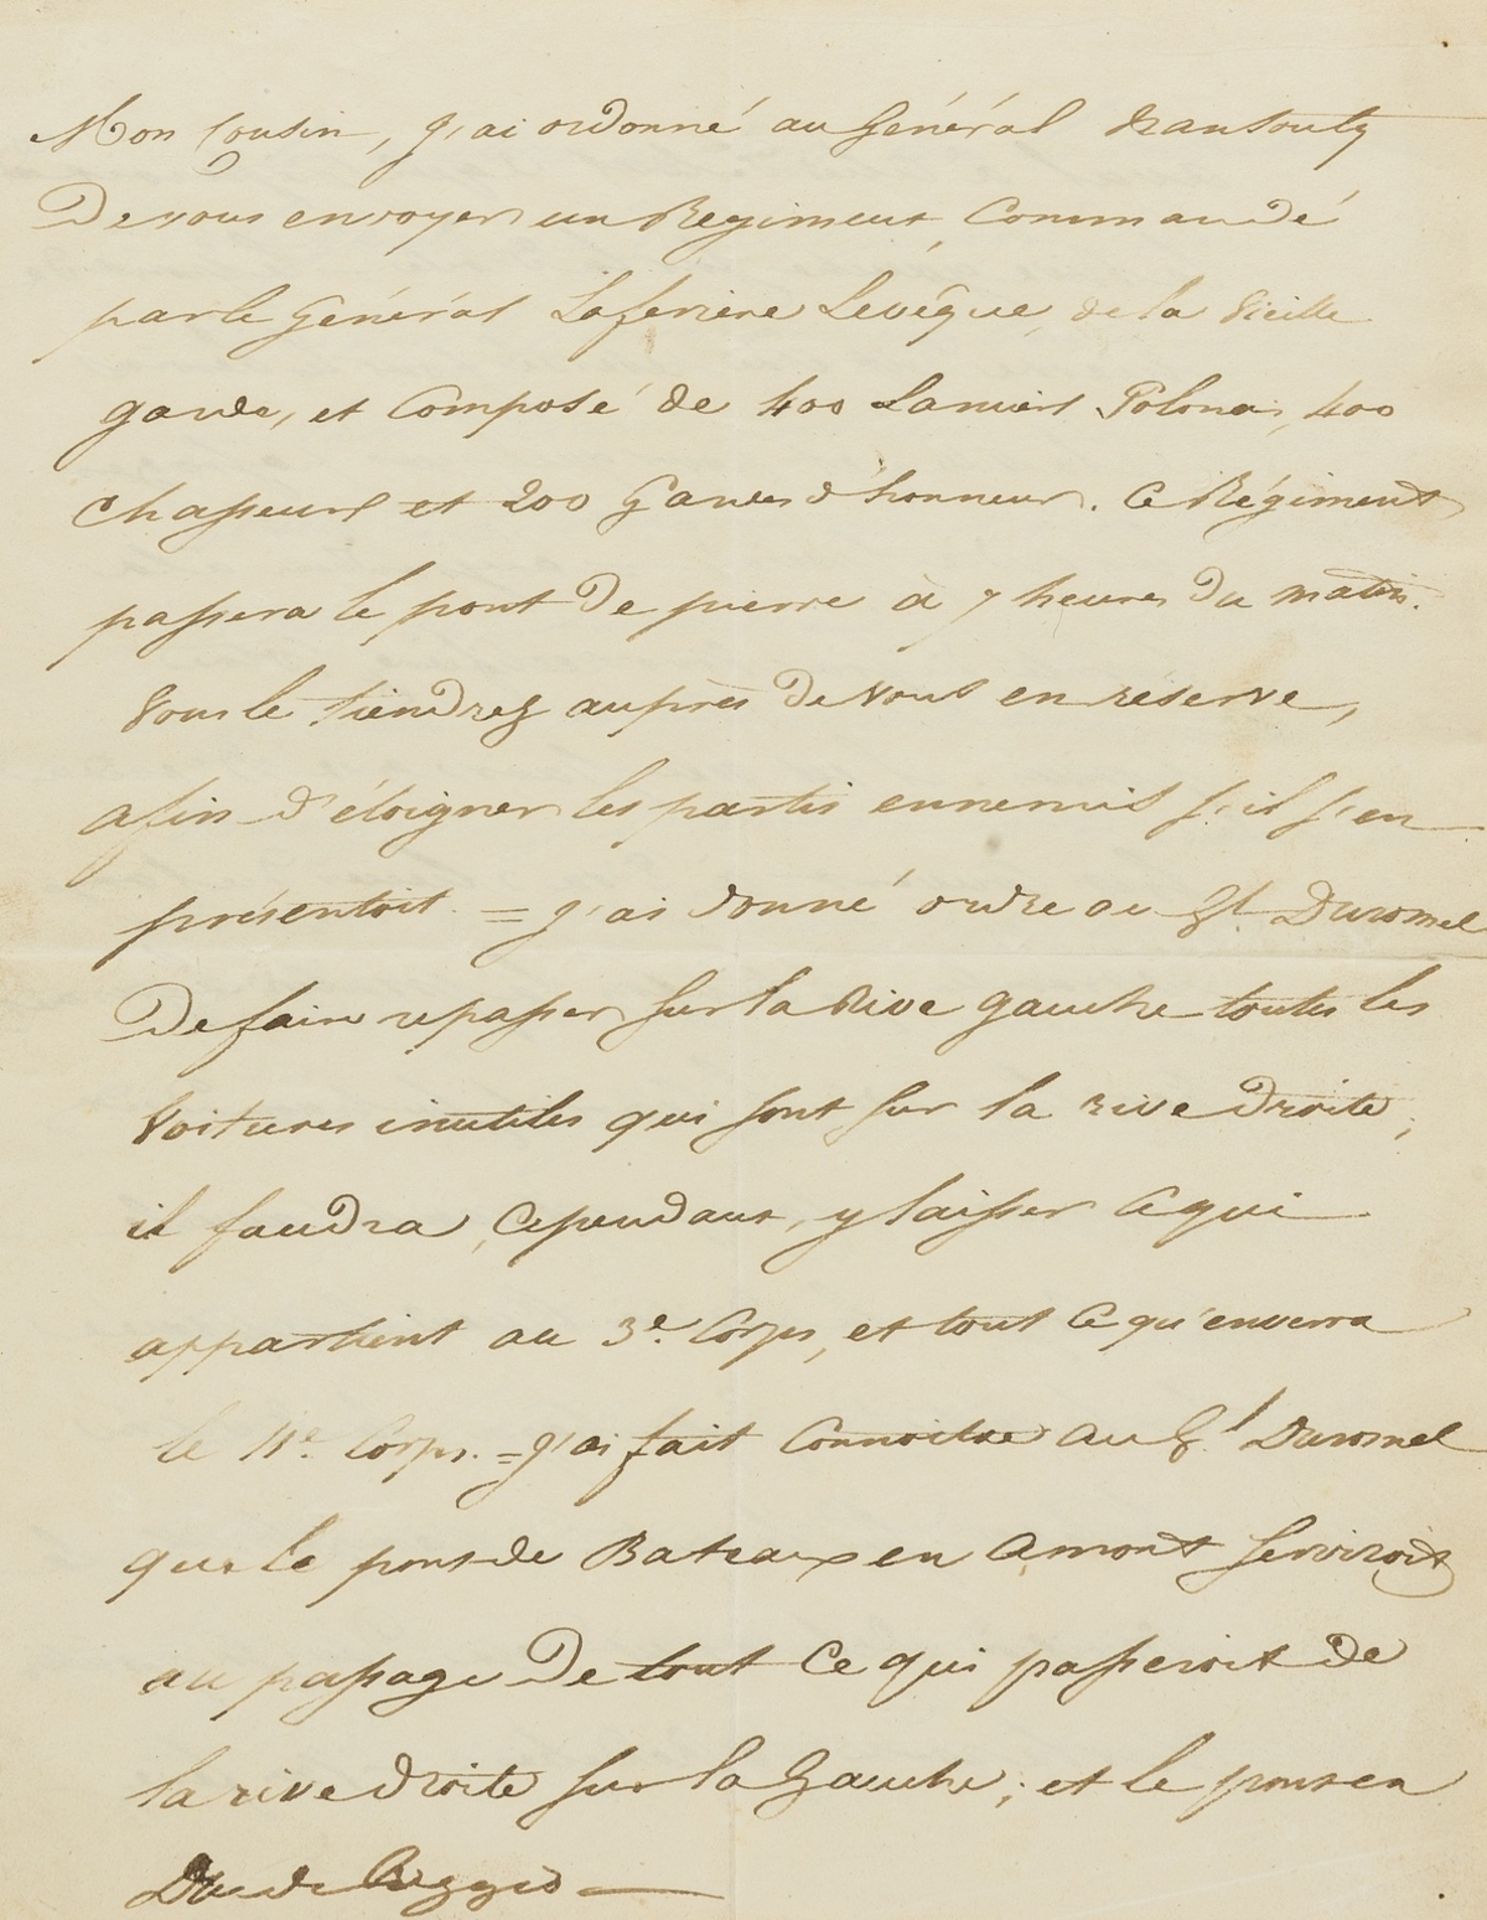 Mon Cousin, j'ai ordonné au Général Nansouty
De vous envoyer un Regiment, Commandé
par le Général Laferriere Levêque, de la Vieille
garde, et Composé de 400 Lanciers Polonais, 400
Chasseurs et 200 Gardes d'honneur. Ce Régiment
passera le pont De pierre à 7 heures Du matin.
Vous le tiendrez auprès De vous en réserve,
afin d'éloigner les partis ennemis s'il s'en
présentoit. = j'ai donné ordre au Gl. Durosnel
De faire repasser sur la Rive gauche toutes les
Voitures inutiles qui sont sur la rive droite;
il faudra, Cependant, y laisser Ce qui
appartient au 3e. Corps, et tout Ce qu'enverra
le 11e. Corps. = j'ai fait Connoitre au Gl. Durosnel
que le pont de Bateaux en amont serviroit
au passage De tout Ce qui passeroit de
la rive droite sur la Gauche; et le pont en
Duc de Reggio